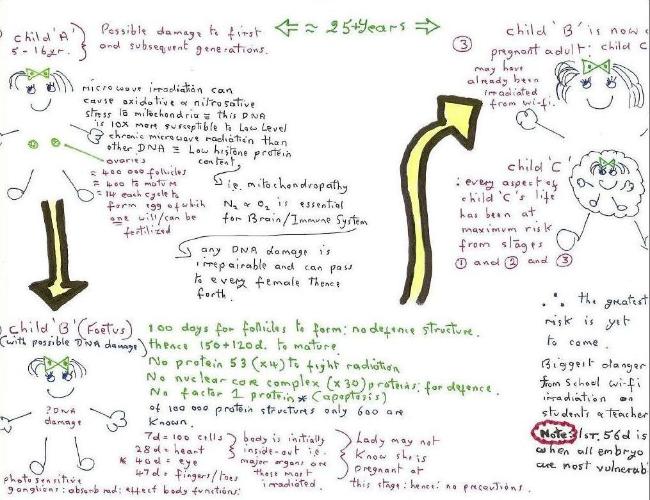 child 'A'
5 - 16 yr.
Possible damage to first
and subsequent generations.
≈ 25+Years
③
child 'B' is now a
pregnant adult: child C
may have
already been
irradiated
from wi-fi.
microwave irradiation can
cause oxidative & nitrosative
stress to mitochondria = this DNA
is 10X more susceptible to Low Level
chronic microwave radiation than
other DNA = Low histone protein
content,
i.e. mitochondropathy
N₂ & O₂ is essential
for Brain/Immune System
any DNA damage is
irrepairable and can pass
to every female thence
forth.
ovaries
= 400 000 follicles
= 400 to mature
= 14 each cycle to
form egg of which
one will/can be
fertilized
child 'C'
: every aspect of
child 'C's life
has been at
maximum risk
from stages
① and ② and ③
∴ the greatest
risk is yet
to come.
Biggest danger
from School wi-fi
irradiation on
students & teacher
Note: 1ST. 56d is
when all embryo
are most vulnerab
child 'B' (Foetus)
(with possible DNA damage)
?DNA
damage
100 days for follicles to form: no defence structure.
thence 150+120d. to mature.
No protein 53 (x4) to fight radiation
No nuclear core complex (x30) proteins: for defence.
No factor 1 protein * (apoptosis)
of 100 000 protein structures only 600 are
known.
7d = 100 cells
28d = heart
* 40d = eye
47d = fingers/toes
body is initially
inside-out i.e.
major organs are
those most
irradiated.
Lady may not
know she is
pregnant at
this stage: hence: no precautions.
photo sensitive
ganglions: absorb rad: effect body functions